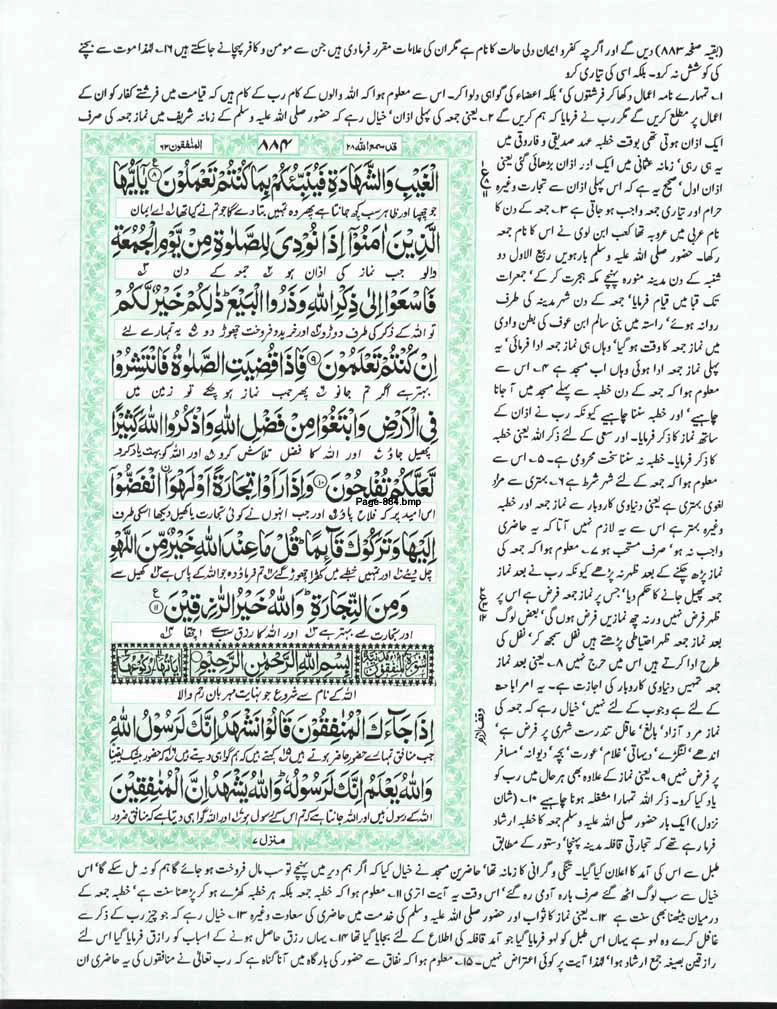 (بقیہ صفحہ ۸۸۳) دیں گے اور اگرچہ کفر و ایمان دلی حالت کا نام ہے مگر ان کی علامات مقرر فرما دی ہیں جن سے مومن و کافر پہچانے جاسکتے ہیں ۱۶۔ لہٰذا موت سے بچنے
کی کوشش نہ کرو۔ بلکہ اسی کی تیاری کرو
۱۔ تمہارے نامہ اعمال دکھا کر فرشتوں کی' بلکہ اعضاء کی گواہی دلوا کر۔ اس سے معلوم ہوا کہ اللہ والوں کے کام رب کے کام ہیں کہ قیامت میں فرشتے کفار کو ان کے
اعمال پر مطلع کریں گے مگر رب نے فرمایا کہ ہم کریں گے ۲۔ یعنی جمعہ کی پہلی اذان' خیال رہے کہ حضور صلی اللہ علیہ وسلم کے زمانہ شریف میں نماز جمعہ کی صرف
قد سمع اللہ ۲۸
۸۸۴
المنٰفقون ۶۳
الْغَيْبِ وَالشَّهَادَةِ فَيُنَبِّئُكُمْ بِمَا كُنْتُمْ تَعْمَلُوْنَ ۸ يٰۤاَيُّهَا
جو چھپا اور ظاہر سب کچھ جانتا ہے پھر وہ تمہیں بتا دے گا جو تم نے کیا تھا اے ایمان
الَّذِيْنَ اٰمَنُوْۤا اِذَا نُوْدِيَ لِلصَّلٰوةِ مِنْ يَّوْمِ الْجُمُعَةِ
والو جب نماز کی اذان ہو جمعہ کے دن
فَاسْعَوْا اِلٰى ذِكْرِ اللّٰهِ وَذَرُوا الْبَيْعَ ذٰلِكُمْ خَيْرٌ لَّكُمْ
تو اللہ کے ذکر کی طرف دوڑو اور خرید و فروخت چھوڑ دو یہ تمہارے لئے
اِنْ كُنْتُمْ تَعْلَمُوْنَ ۹ فَاِذَا قُضِيَتِ الصَّلٰوةُ فَانْتَشِرُوْا
بہتر ہے اگر تم جانو پھر جب نماز ہو چکے تو زمین میں
فِي الْاَرْضِ وَابْتَغُوْا مِنْ فَضْلِ اللّٰهِ وَاذْكُرُوا اللّٰهَ كَثِيْرًا
پھیل جاؤ اور اللہ کا فضل تلاش کرو اور اللہ کو بہت یاد کرو
لَّعَلَّكُمْ تُفْلِحُوْنَ ۱۰ وَاِذَا رَاَوْا تِجَارَةً اَوْ لَهْوَا ۨانْفَضُّوْۤا
Page-884.bmp
اس امید پر کہ فلاح پاؤ اور جب انہوں نے کوئی تجارت یا کھیل دیکھا اسکی طرف
اِلَيْهَا وَتَرَكُوْكَ قَآئِمًا قُلْ مَا عِنْدَ اللّٰهِ خَيْرٌ مِّنَ اللَّهْوِ
چل دیئے اور تمہیں خطبے میں کھڑا چھوڑ گئے تم فرماؤ وہ جو اللہ کے پاس ہے کھیل سے
وَمِنَ التِّجَارَةِ وَاللّٰهُ خَيْرُ الرّٰزِقِيْنَ ۱۱
اور تجارت سے بہتر ہے اور اللہ کا رزق سب سے اچھا
بِسْمِ اللّٰهِ الرَّحْمٰنِ الرَّحِيْمِ
اللہ کے نام سے شروع جو نہایت مہربان رحم والا
اِذَا جَآءَكَ الْمُنٰفِقُوْنَ قَالُوْا نَشْهَدُ اِنَّكَ لَرَسُوْلُ اللّٰهِ
جب منافق تمہارے حضور حاضر ہوتے ہیں کہتے ہیں کہ ہم گواہی دیتے ہیں کہ حضور بیشک یقینا
وَاللّٰهُ يَعْلَمُ اِنَّكَ لَرَسُوْلُهٗ وَاللّٰهُ يَشْهَدُ اِنَّ الْمُنٰفِقِيْنَ
اللہ کے رسول ہیں اور اللہ جانتا ہے کہ تم اس کے رسول ہو اور اللہ گواہی دیتا ہے کہ منافق ضرور
منزل ۷
وقف لازم
ایک اذان ہوتی تھی بوقت خطبہ عہد صدیقی و فاروقی میں
یہ ہی رہی' زمانہ عثمانی میں ایک اور اذان بڑھائی گئی یعنی
اذان اول' صحیح یہ ہے کہ اس پہلی اذان سے تجارت وغیرہ
حرام اور تیاری جمعہ واجب ہو جاتی ہے ۳۔ جمعہ کے دن کا
نام عربی میں عروبہ تھا کعب ابن لوی نے اس کا نام جمعہ
رکھا۔ حضور صلی اللہ علیہ وسلم بارہویں ربیع الاول دو
شنبہ کے دن مدینہ منورہ پہنچے مکہ ہجرت کر کے' جمعرات
تک قبا میں قیام فرمایا' جمعہ کے دن شہر مدینہ کی طرف
روانہ ہوئے' راستہ میں بنی سالم ابن عوف کی بطن وادی
میں نماز جمعہ کا وقت ہو گیا' وہاں ہی نماز جمعہ ادا فرمائی' یہ
پہلی نماز جمعہ ادا ہوئی وہاں اب مسجد ہے ۴۔ اس سے
معلوم ہوا کہ جمعہ کے دن خطبہ سے پہلے مسجد میں آ جانا
چاہیے' اور خطبہ سننا چاہیے کیونکہ رب نے اذان کے
ساتھ نماز کا ذکر فرمایا۔ اور سعی کے لئے ذکر اللہ یعنی خطبہ
کا ذکر فرمایا۔ خطبہ نہ سننا سخت محرومی ہے۔ ۵۔ اس سے
معلوم ہوا کہ جمعہ کے لئے شہر شرط ہے ۶۔ بہتری سے مراد
لغوی بہتری ہے یعنی دنیاوی کاروبار سے نماز جمعہ اور خطبہ
وغیرہ بہتر ہے اس سے یہ لازم نہیں آتا کہ یہ حاضری
واجب نہ ہو' صرف مستحب ہو ۷۔ معلوم ہوا کہ جمعہ کی
نماز پڑھ چکنے کے بعد ظہر نہ پڑھے کیونکہ رب نے بعد نماز
جمعہ پھیل جانے کا حکم دیا' جس پر نماز جمعہ فرض ہے اس پر
ظہر فرض نہیں ورنہ چھ نمازیں فرض ہوں گی' بعض لوگ
بعد نماز جمعہ ظہر احتیاطی پڑھتے ہیں نفل سمجھ کر' نفل کی
طرح ادا کرتے ہیں اس میں حرج نہیں ۸۔ یعنی بعد نماز
جمعہ تمہیں دنیاوی کاروبار کی اجازت ہے۔ یہ امر اباحت
کے لئے ہے وجوب کے لئے نہیں' خیال رہے کہ جمعہ کی
نماز مرد آزاد' بالغ' عاقل تندرست شہری پر فرض ہے'
اندھے' لنگڑے' دیہاتی' غلام' عورت' بچہ' دیوانہ' مسافر
پر فرض نہیں ۹۔ یعنی نماز کے علاوہ بھی ہر حال میں رب کو
یاد کیا کرو۔ ذکر اللہ تمہارا مشغلہ ہونا چاہیے ۱۰۔ (شان
نزول) ایک بار حضور صلی اللہ علیہ وسلم جمعہ کا خطبہ ارشاد
فرما رہے تھے کہ تجارتی قافلہ مدینہ پہنچا' دستور کے مطابق
طبل سے اس کی آمد کا اعلان کیا گیا۔ تنگی و گرانی کا زمانہ تھا' حاضرین مسجد نے خیال کیا کہ اگر ہم دیر میں پہنچے تو سب مال فروخت ہو جائے گا ہم کو نہ مل سکے گا' اس
خیال سے سب لوگ اٹھ گئے صرف بارہ آدمی رہ گئے' اس وقت یہ آیت اتری ۱۱۔ معلوم ہوا کہ خطبہ جمعہ بلکہ ہر خطبہ کھڑے ہو کر پڑھنا سنت ہے' خطبہ جمعہ کے
درمیان بیٹھنا بھی سنت ہے ۱۲۔ یعنی نماز کا ثواب اور حضور صلی اللہ علیہ وسلم کی خدمت میں حاضری کی سعادت وغیرہ ۱۳۔ خیال رہے کہ جو چیز رب کے ذکر سے
غافل کرے وہ لہو ہے یہاں اس طبل کو لہو فرمایا گیا جو آمد قافلہ کی اطلاع کے لئے بجایا گیا تھا ۱۴۔ یہاں رزق حاصل ہونے کے اسباب کو رازق فرمایا گیا اس لئے
رازقین بصیغہ جمع ارشاد ہوا' لہٰذا آیت پر کوئی اعتراض نہیں۔ ۱۵۔ معلوم ہوا کہ نفاق سے حضور کی بارگاہ میں آنا گناہ ہے کہ رب تعالیٰ نے منافقوں کی یہ حاضری ان